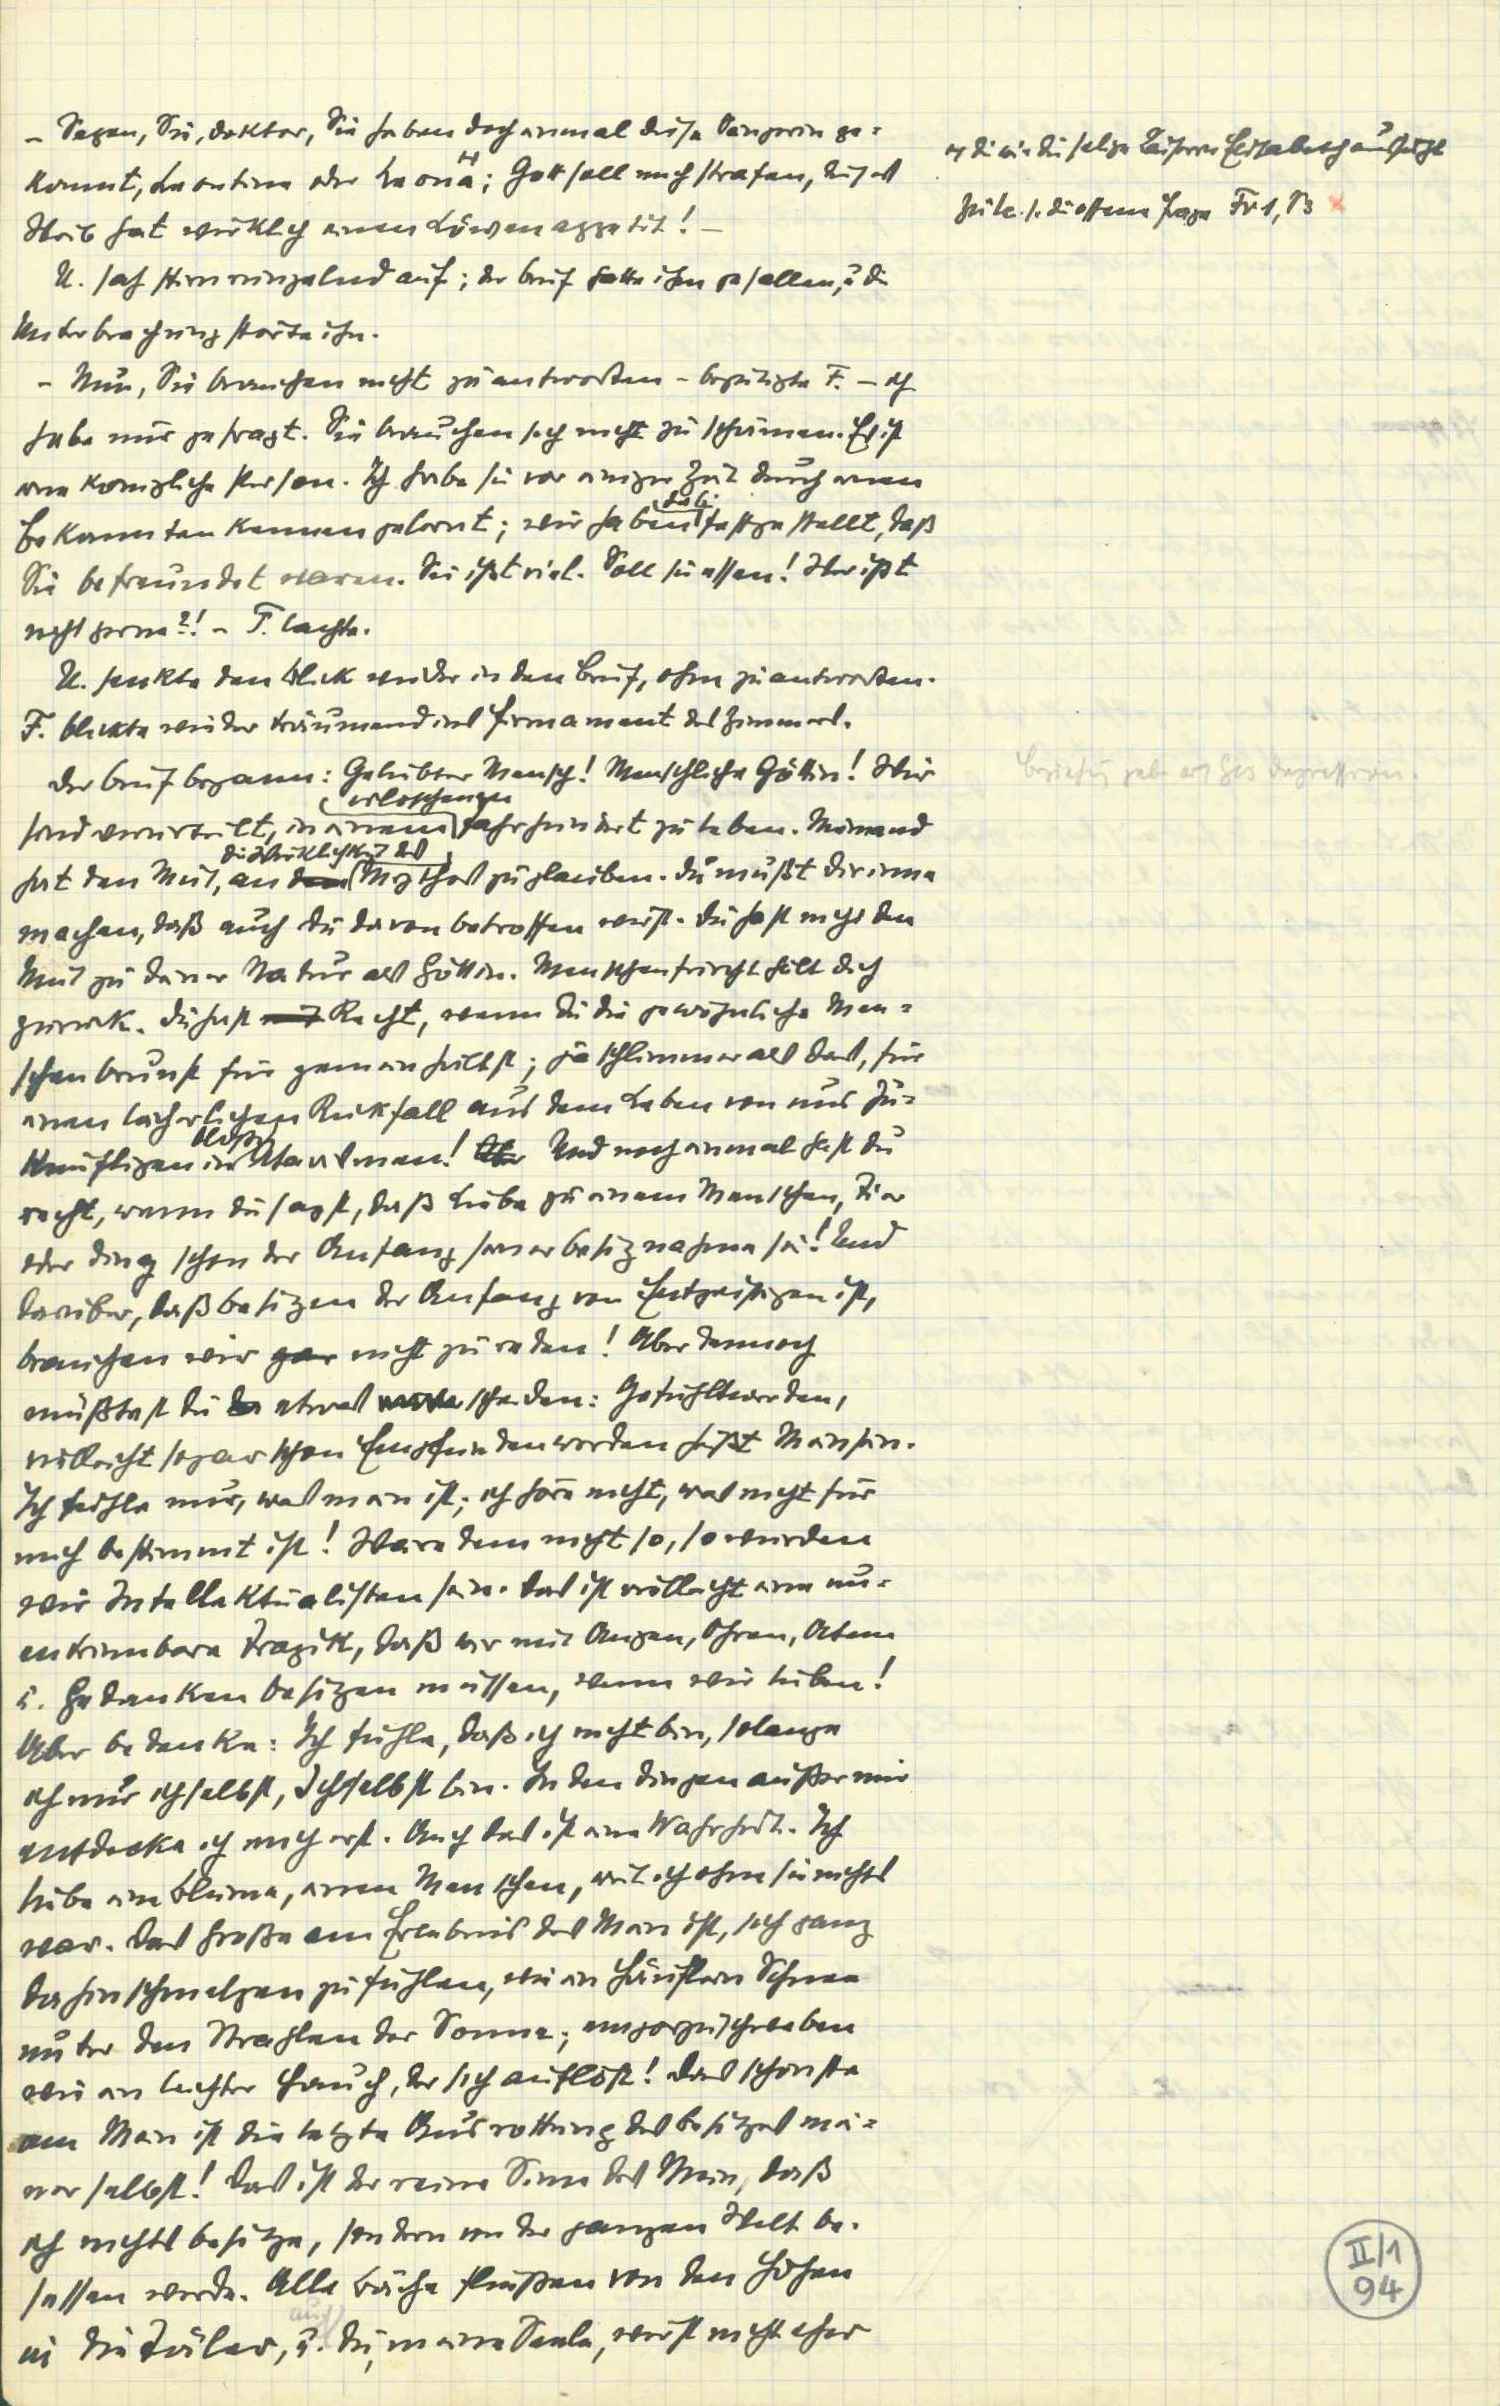 – Sagen, Sie, Doktor, Sie haben doch einmal diese Sängerin ge=
kannt, Leontine oder Leona; Gott soll mich strafen, dieses
Weib hat wirklich einen Löwenappetit! –
U. sah stirnrunzelnd auf; der Brief hatte ihm gefallen, u die
Unterbrechung störte ihn.
– Nun, Sie brauchen nicht zu antworten – begütigte F. – ich
habe nur gefragt. Sie brauchen sich nicht zu schämen. Es ist
eine königliche Person. Ich habe sie vor einiger Zeit durch einen
dabei
Bekannten kennen gelernt; wir haben festgestellt, daß
Sie befreundet waren. Sie ißt viel. Soll sie essen! Wer ißt
nicht gerne?! – F. lachte.
U. senkte den Blick wieder in den Brief, ohne zu antworten.
F. blickte wieder träumend ins Firmament des Zimmers.
Der Brief begann: Geliebter Mensch! Menschliche Göttin! Wir
erloschenen
sind verurteilt, in einem Jahrhundert zu leben. Niemand
die Wirklichkeit des
hat den Mut, an den Mythos zu glauben. Du mußt dir inne
machen, daß auch du davon betroffen wirst. Du hast nicht den
Mut zu deiner Natur als Göttin. Menschenfurcht hält dich
zurück. Du hast Recht, wenn du die gewöhnliche Men=
schenbrunst für gemein hältst; ja schlimmer als das, für
einen lächerlichen Rückfall aus dem Leben von uns Zu=
bloßen
künftigen in Atavismen! Und noch einmal hast du
recht, wenn du sagst, daß Liebe zu einem Menschen, Tier
oder Ding schon der Anfang seiner Besitznahme sei! Und
darüber, daß besitzen der Anfang von Entgeistigen ist,
brauchen wir gar nicht zu reden! Aber dennoch
müßtest du etwas scheiden: Gefühltwerden,
vielleicht sogar schon Empfundenwerden heißt Meinsein.
Ich fühle nur, was mein ist; ich höre nicht, was nicht für
mich bestimmt ist! Wäre dem nicht so, so würden
wir Intellektualisten sein. Das ist vielleicht eine un=
entrinnbare Tragik, daß wir mit Augen, Ohren, Atem
u. Gedanken besitzen müssen, wenn wir lieben!
Aber bedenke: Ich fühle, daß ich nicht bin, solange
ich nur ichselbst, Ichselbst bin. In den Dingen außer mir
entdecke ich mich erst. Auch das ist eine Wahrheit. Ich
liebe eine Blume, einen Menschen, weil ich ohne sie nichts
war. Das Große am Erlebnis des Mein ist, sich ganz
dahinschmelzen zu fühlen, wie ein Häuflein Schnee
unter den Strahlen der Sonne; emporzuschweben
wie ein leichter Hauch, der sich auflöst! Das schönste
am Mein ist die letzte Ausrottung des Besitzes mei=
ner selbst! Das ist der reine Sinn des Mein, daß
ich nichts besitze, sondern von der ganzen Welt be=
sessen werde. Alle Bäche fließen von den Höhen
auch
in die Täler, u. du, meine Seele, wirst nicht eher
die wie die selige Kaiserin Elisabeth aussieht
s. die offene Frage Fr 1, B
II/1
94